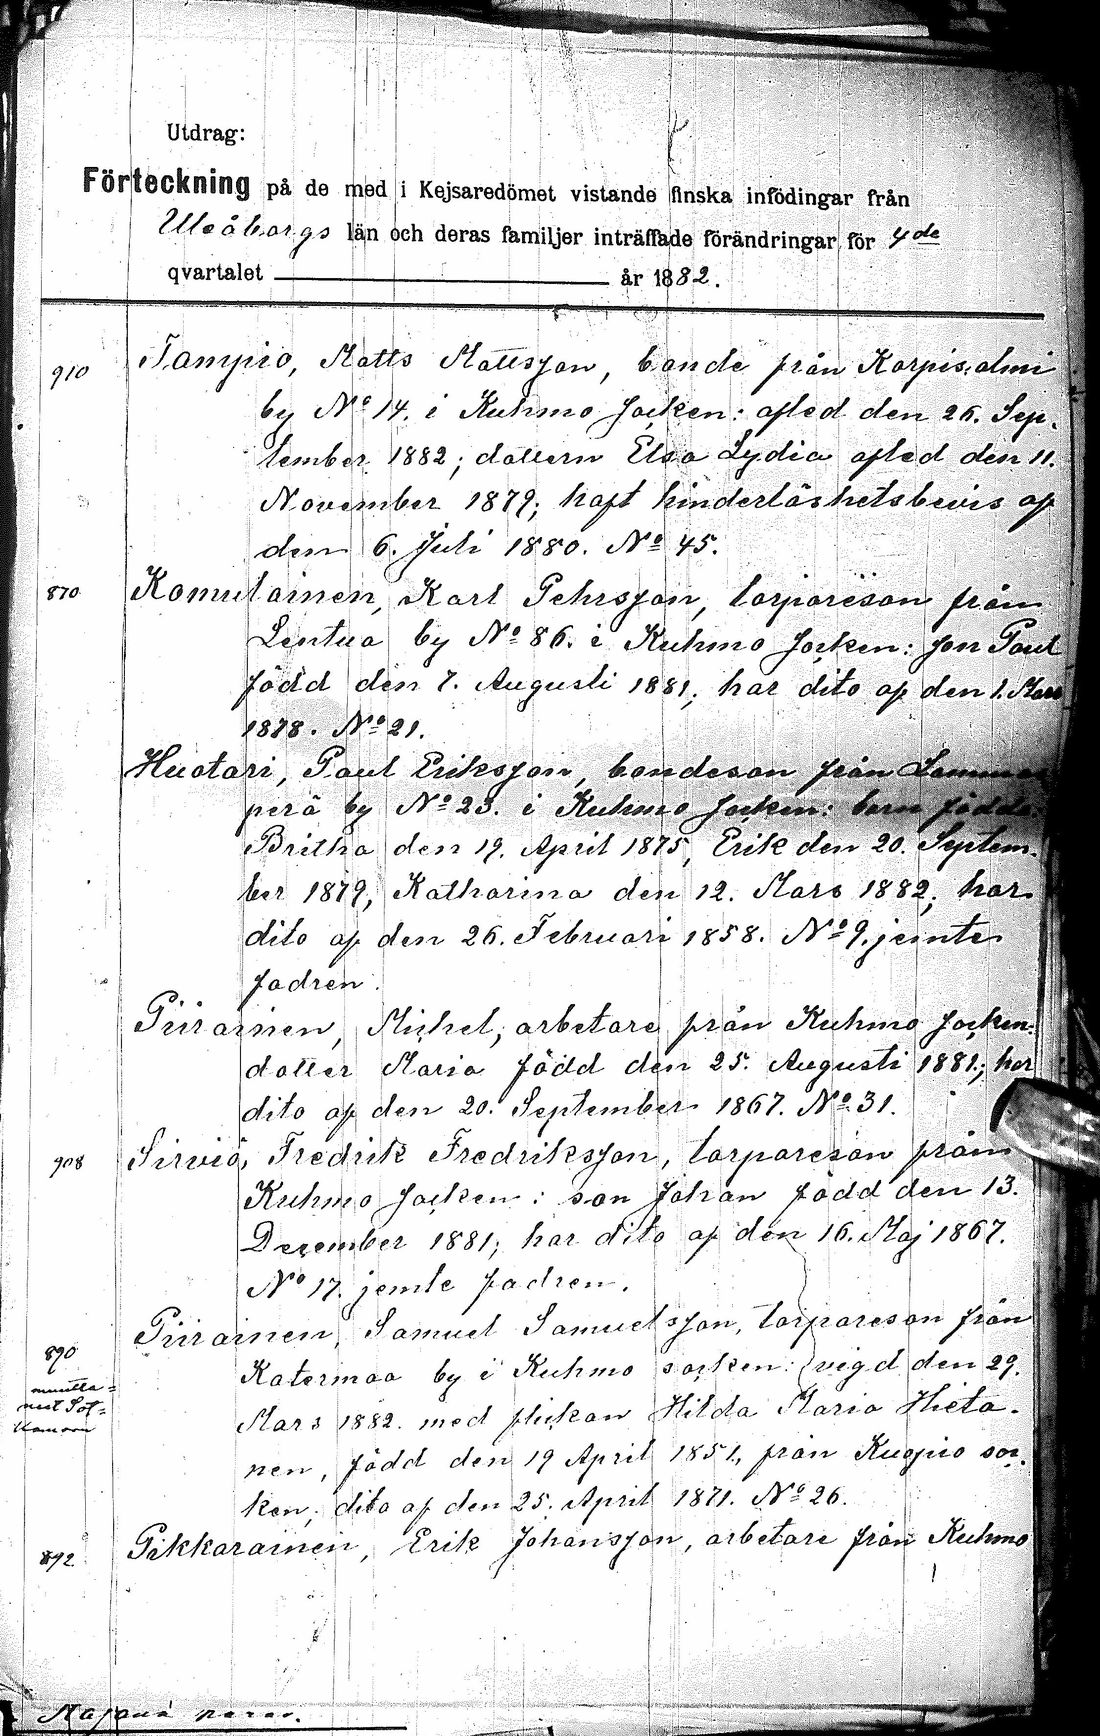 Utdrag:
Förteckning på de med i Kejsaredömet vistande finska infödingar från
Uleåborgs län och deras familjer inträffade förändringar för 4de
qvartalet år 1882.
910 Tampio, Matts Mattsson, bonde från Korpisalmi
by No 14. i Kuhmo socken: afled den 26. Sep-
tember 1882; dottern Elsa Lydia afled den 11.
November 1879; haft hinderlöshetsbevis af
den 6. Juli 1880. No 45.
870 Komulainen, Karl Pehrsson, torpareson från
Lentua by No 86. i Kuhmo socken: son Paul
född den 7. Augusti 1881; har dito af den 1. Mars
1878. No 21.
Huotari, Paul Eriksson, bondeson från Lamma
perä by No 23. i Kuhmo socken: barn födda:
Britha den 19. April 1875, Erik den 20. Septem-
ber 1879, Katharina den 12. Mars 1882; har
dito af den 26. Februari 1858. No 9. jemte
fadren.
Piirainen, Michel, arbetare från Kuhmo socken:
dotter Maria född den 25. Augusti 1881; har
dito af den 20. September 1867. No 31.
908 Sirviö, Fredrik Fredriksson, torpareson från
Kuhmo socken: son Johan född den 13.
December 1881; har dito af den 16. Maj 1867.
No 17. jemte fadren.
Piirainen, Samuel Samuelsson, torpareson från
890 Katermaa by i Kuhmo socken: vigd den 29.
muutta=
nut Sot=
kamoon
Mars 1882. med flickan Hilda Maria Hieta-
nen, född den 19 April 1851, från Kuopio soc-
ken; dito af den 25. April 1871. No 26.
892 Pikkarainen, Erik Johansson, arbetare från Kuhmo